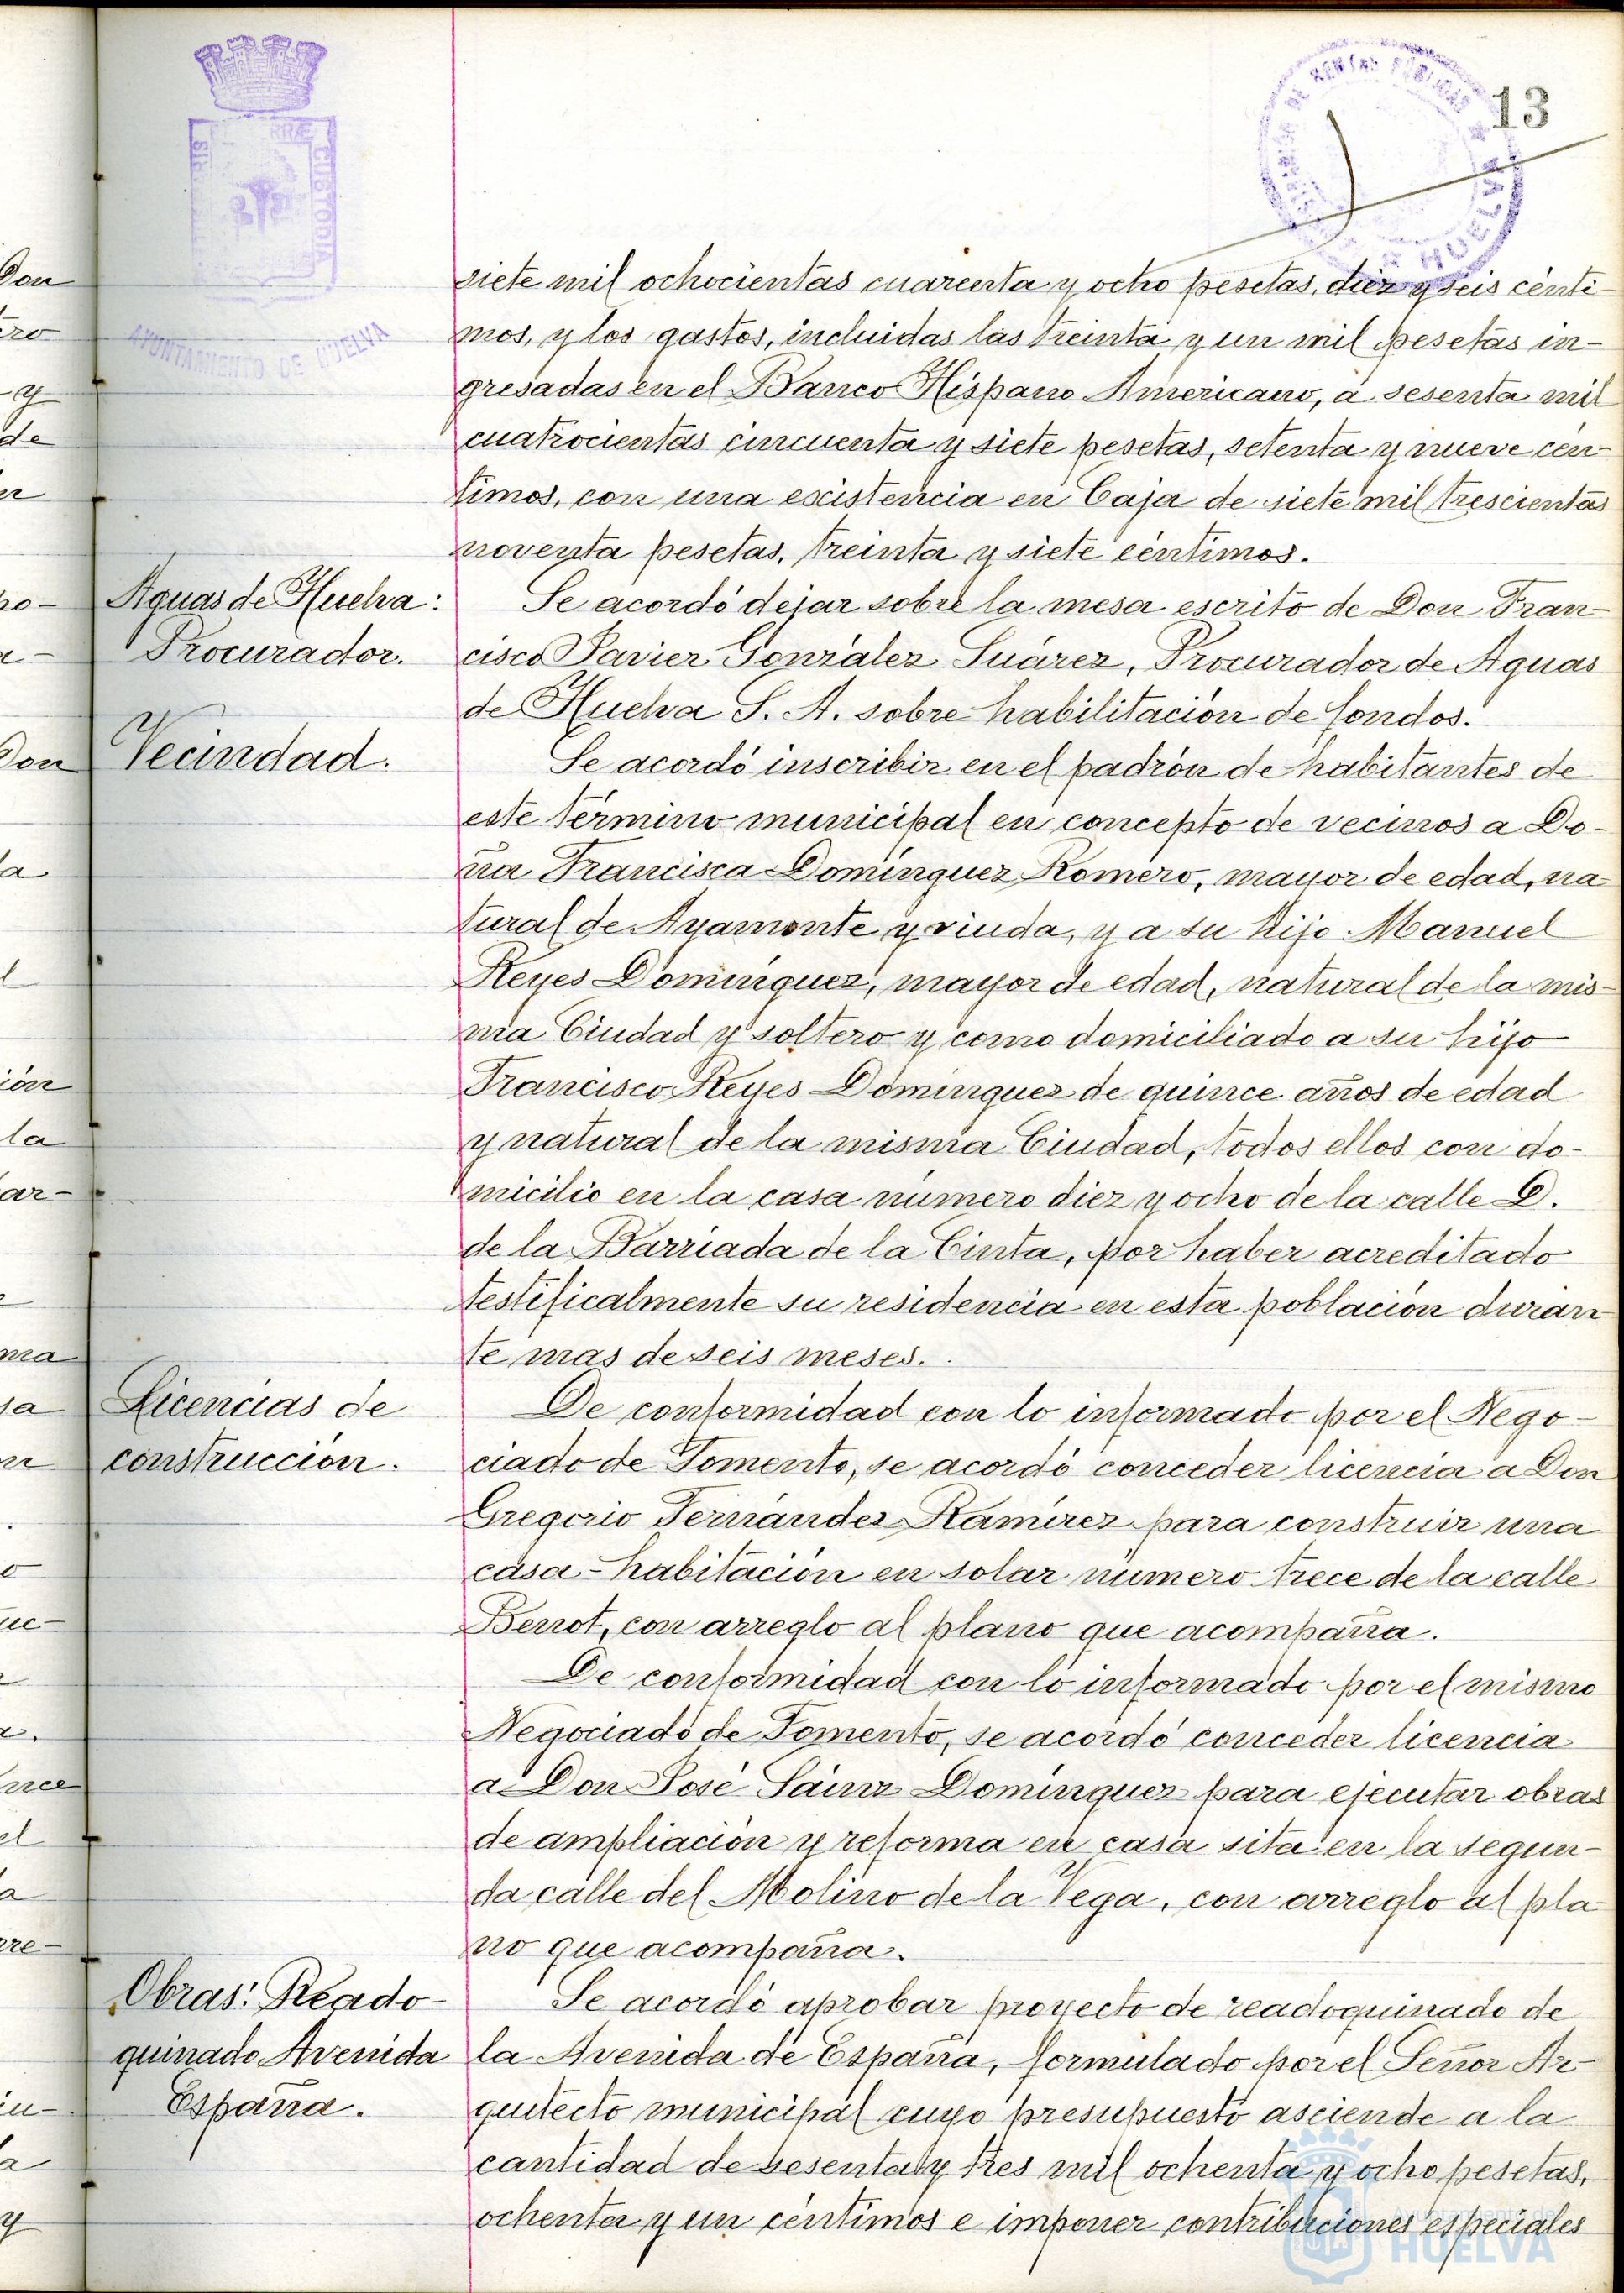 13
AYUNTAMIENTO DE HUELVA
CUSTODIA
HUELVA
siete mil ochocientas cuarenta y ocho pesetas, diez y seis cénti-
mos, y los gastos, incluidas las treinta y un mil pesetas in-
gresadas en el Banco Hispano Americano, a sesenta mil
cuatrocientas cincuenta y siete pesetas, setenta y nueve cén-
timos, con una existencia en Caja de siete mil trescientas
noventa pesetas, treinta y siete céntimos.
Aguas de Huelva:
Procurador.
Se acordó dejar sobre la mesa escrito de Don Fran-
cisco Javier González Suárez, Procurador de Aguas
de Huelva S. A. sobre habilitación de fondos.
Vecindad.
Se acordó inscribir en el padrón de habitantes de
este término municipal en concepto de vecinos a Do-
ña Francisca Domínguez Romero, mayor de edad, na
tural de Ayamonte y viuda, y a su hijo Manuel
Reyes Domínguez, mayor de edad, natural de la mis-
ma Ciudad y soltero y como domiciliado a su hijo
Francisco Reyes Domínguez de quince años de edad
y natural de la misma Ciudad, todos ellos con do-
micilio en la casa número diez y ocho de la calle D.
de la Barriada de la Cinta, por haber acreditado
testificalmente su residencia en esta población duran
te mas de seis meses.
Licencias de
construcción.
De conformidad con lo informado por el Nego-
ciado de Fomento, se acordó conceder licencia a Don
Gregorio Fernández Ramírez para construir una
casa-habitación en solar número trece de la calle
Berrot, con arreglo al plano que acompaña.
De conformidad con lo informado por el mismo
Negociado de Fomento, se acordó conceder licencia
a Don José Sáinz Domínguez para ejecutar obras
de ampliación y reforma en casa sita en la segun-
da calle del Molino de la Vega, con arreglo al pla
no que acompaña.
Obras: Reado-
quinado Avenida
España.
Se acordó aprobar proyecto de readoquinado de
la Avenida de España, formulado por el Señor Ar-
quitecto municipal cuyo presupuesto asciende a la
cantidad de sesenta y tres mil ochenta y ocho pesetas,
ochenta y un céntimos e imponer contribuciones especiales
Ayuntamiento de
HUELVA